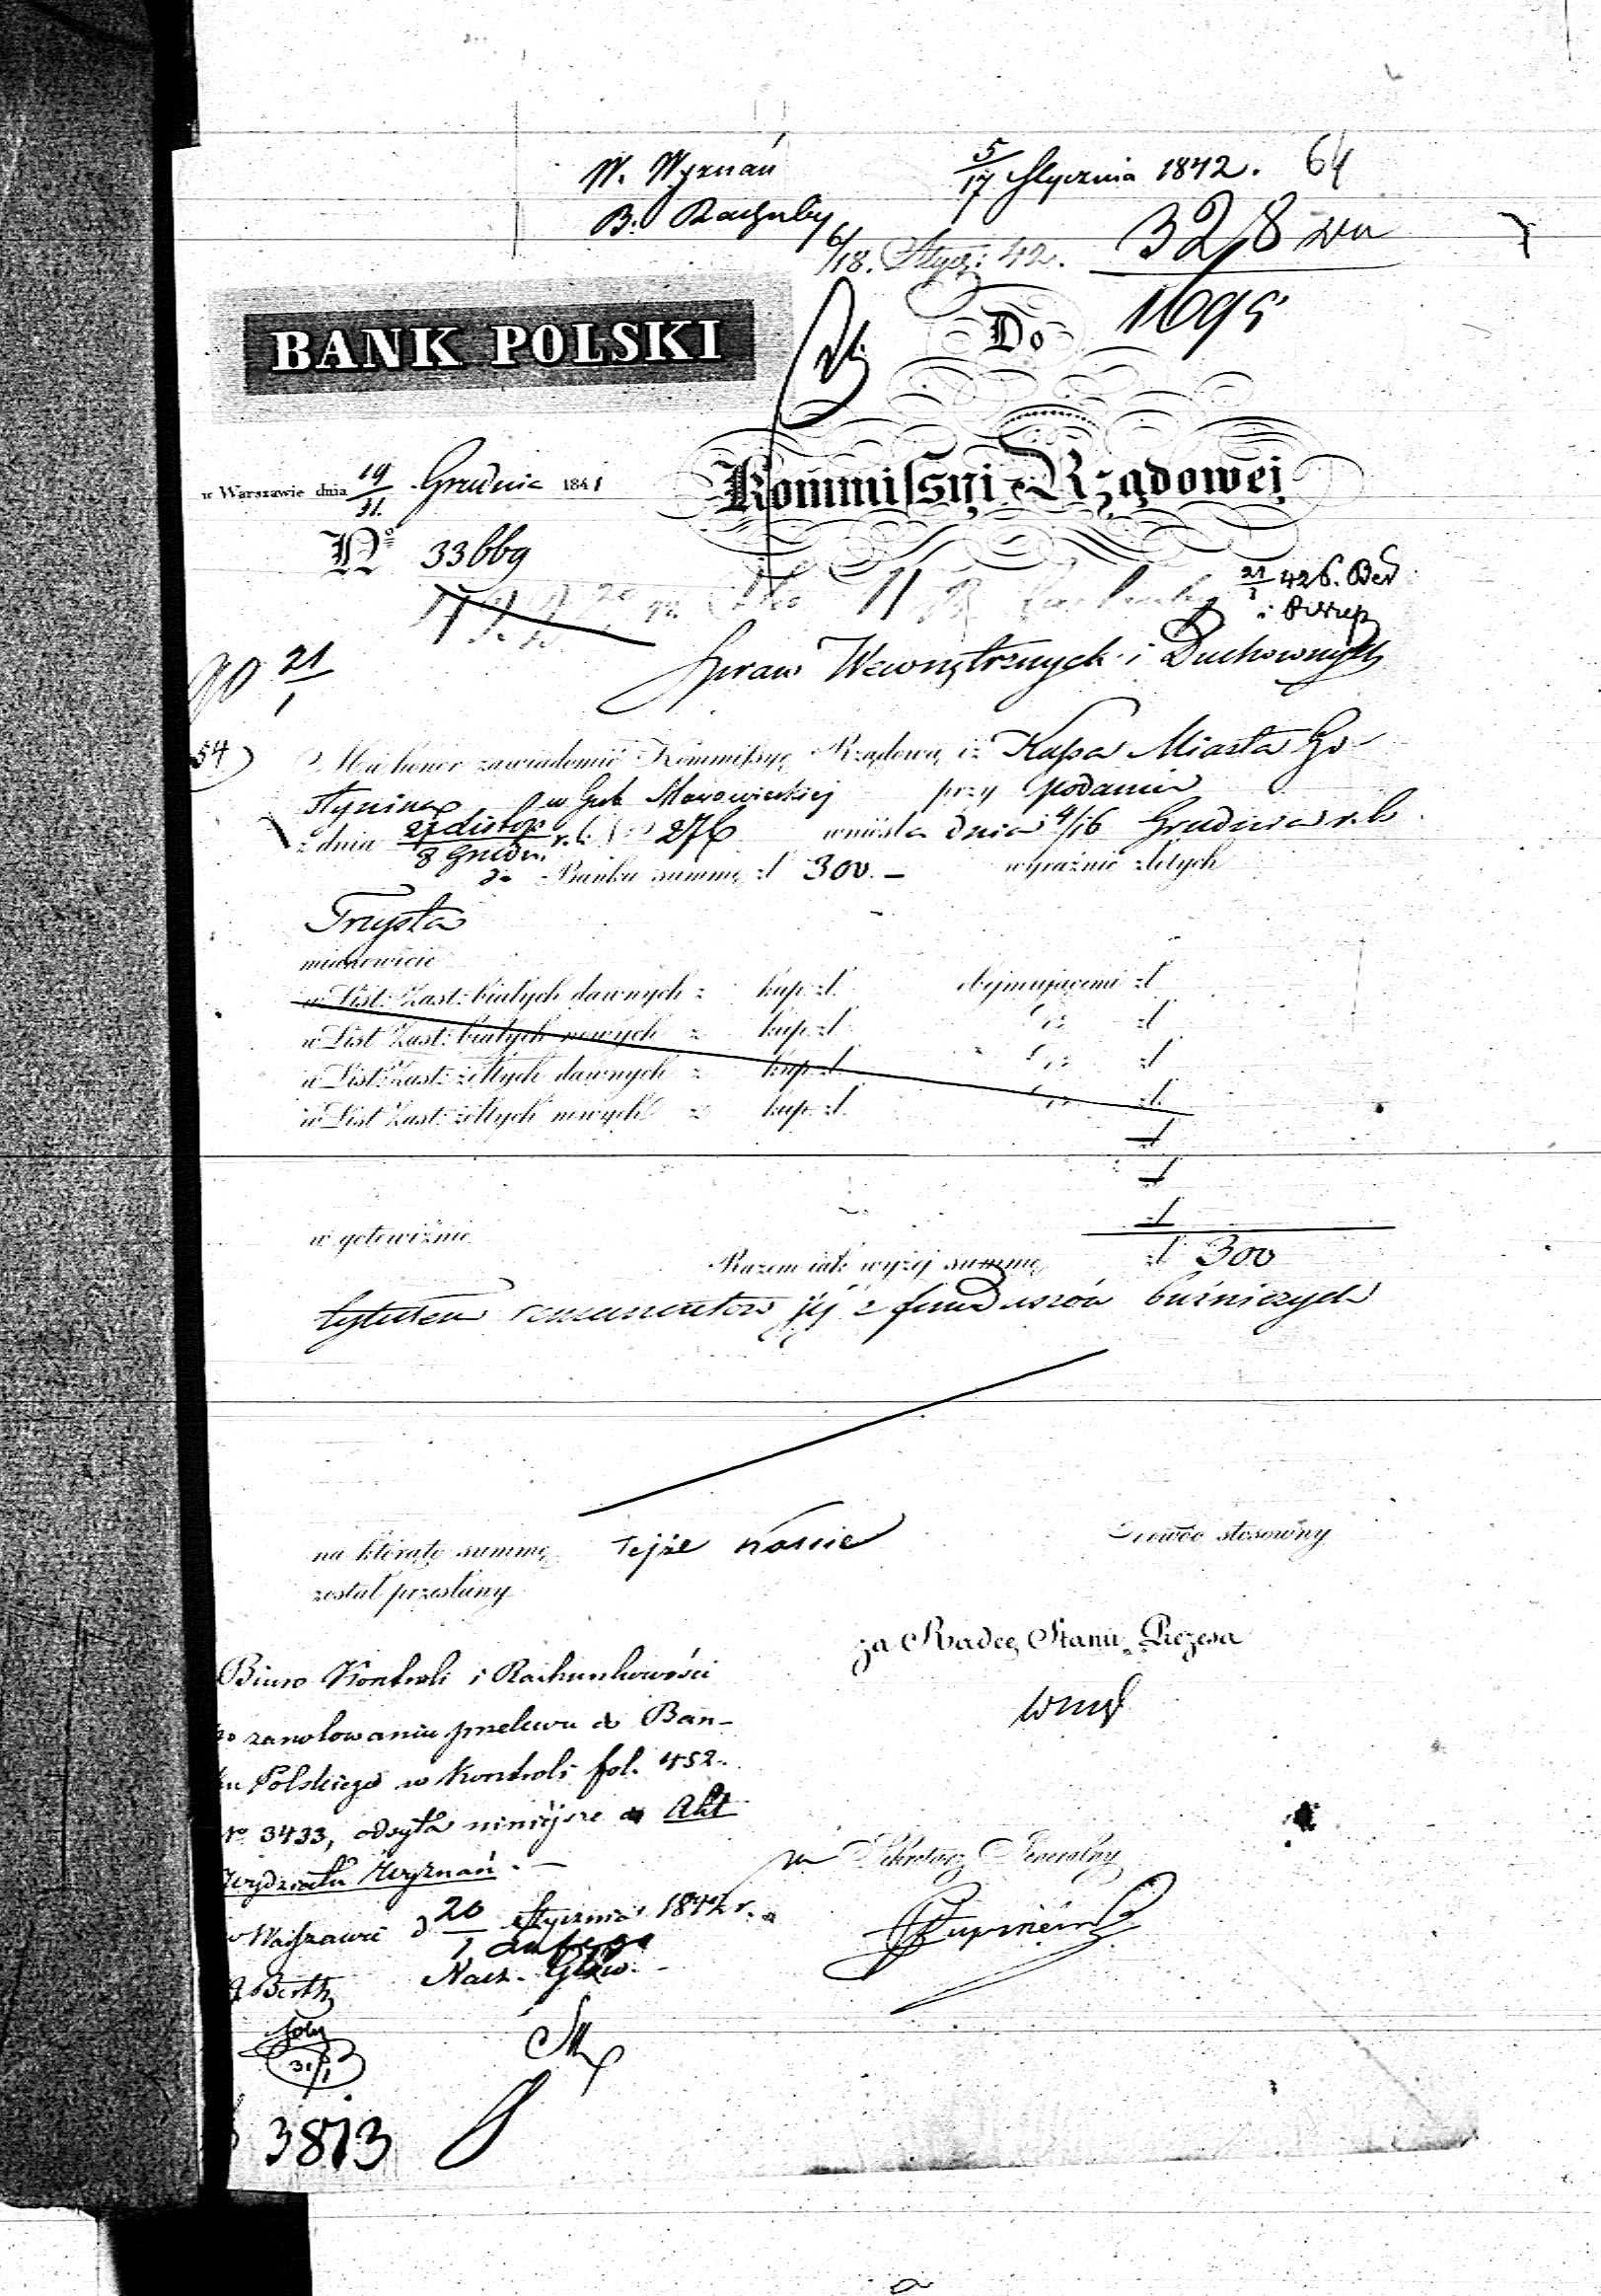 W. Wyznań
5/17 Stycznia 1842. 64
B. Rachuby
6/18. Stycz: 42.
328
1695
BANK POLSKI
Do
Kommissyi Rządowej
w Warszawie dnia 19/31 Grudnia 1841
No 33669
21/1 426.
Spraw Wewnętrznych i Duchownych
21/1
54)
Ma honor zawiadomić Kommissyę Rządową iż Kassa Miasta Go-
stynina w Gub Mazowieckiej przy podaniu
z dnia 27 Listop/8 Grudn. r.b. No 276 wniosła dnia 4/16 Grudnia r.b.
do Banku summę zł 300. — wyraźnie złotych
Trzysta
mianowicie
w List: Zast: białych dawnych z kup. zł. obejmującemi zł
w List: Zast: białych nowych z kup. zł. zł
w List: Zast: żółtych dawnych z kup. zł. zł
w List: Zast: żółtych nowych z kup. zł. zł.
zł
zł
w gotowiźnie zł
Razem jak wyżej summę zł 300
tytułem remanentów jej z funduszów bóżniczych
na którą tę summę tejże kassie Dowód stosowny
został przesłany
za Radcę Stanu Prezesa
Biuro Kontroli i Rachunkowości
po zanotowaniu przelewu do Ban-
ku Polskiego w Kontroli fol. 452.
No 3433, odsyła niniejsze do Akt
Wydziału Wyznań. —
w Warszawie d 20 Stycznia/1 Lutego 1842 r.
Nacz. Głów.
Sekretarz Jeneralny
31/1
3873